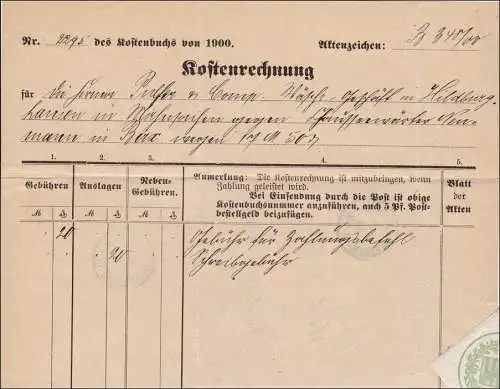 Nr. 2295 des Kostenbuchs von 1900. Aktenzeichen: B 340/00
Kostenrechnung
für die Firma & Comp. Wäsche-Geschäft in Hildburg-
hausen in Mahnsachen gegen Chausseewärter Neu-
mann in wegen 17 M 50 ₰
1. 2. 3. 4. 5.
Gebühren Auslagen Neben-Gebühren. Anmerkung: Die Kostenrechnung ist mitzubringen, wenn Blatt der Akten
Zahlung geleistet wird.
Bei Einsendung durch die Post ist obige
Kostenbuchsnummer anzuführen, auch 5 Pf. Post-
bestellgeld beizufügen.
M ₰ M ₰ M ₰
. 20 Gebühr für Zahlungsbefehl
. 20 Schreibgebühr